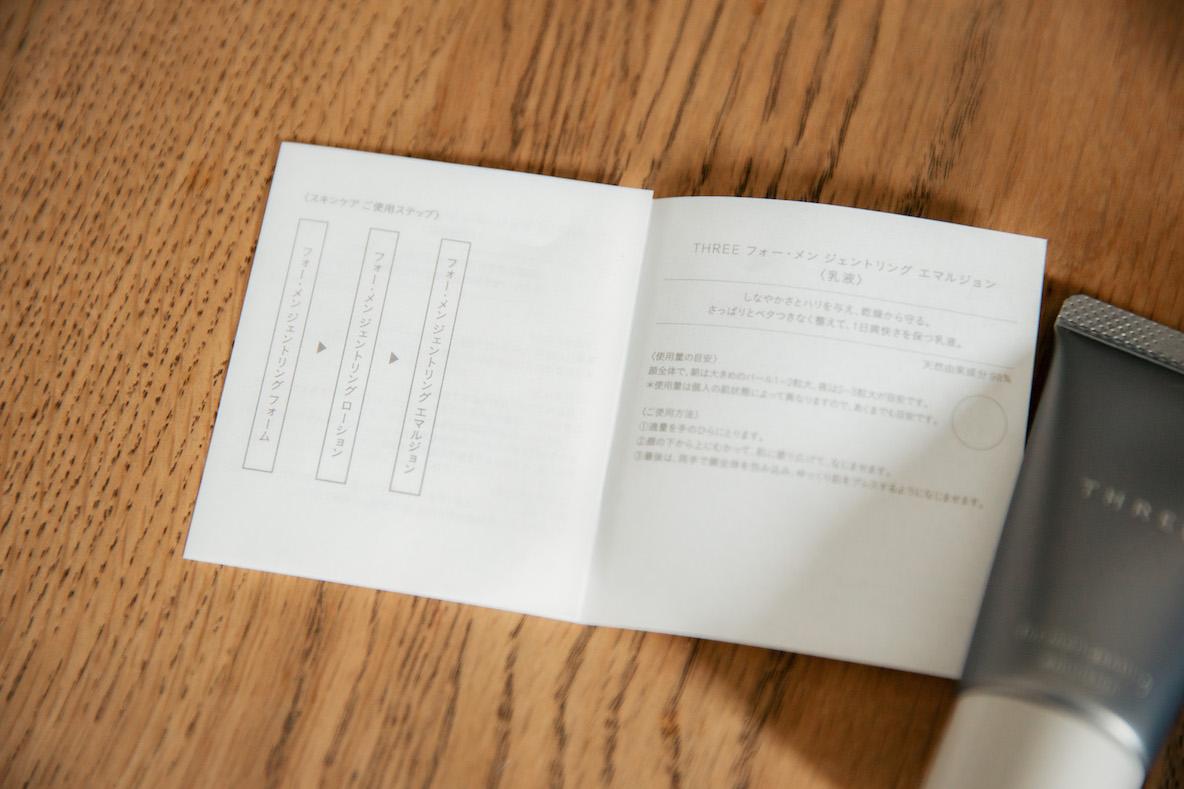 〈スキンケア ご使用ステップ〉
フォー・メン ジェントリング フォーム
▶
フォー・メン ジェントリング ローション
▶
フォー・メン ジェントリング エマルジョン
THREE フォー・メン ジェントリング エマルジョン
〈乳液〉
しなやかさとハリを与え、乾燥から守る。
さっぱりとベタつきなく整えて、1日爽快さを保つ乳液。
天然由来成分 98%
〈使用量の目安〉
顔全体で、朝は大きめのパール1~2粒大、夜は2~3粒大が目安です。
＊使用量は個人の肌状態によって異なりますので、あくまでも目安です。
〈ご使用方法〉
①適量を手のひらにとります。
②顔の下から上にむかって、肌に塗り広げて、なじませます。
③最後は、両手で顔全体を包み込み、ゆっくり肌をプレスするようになじませます。
THREE